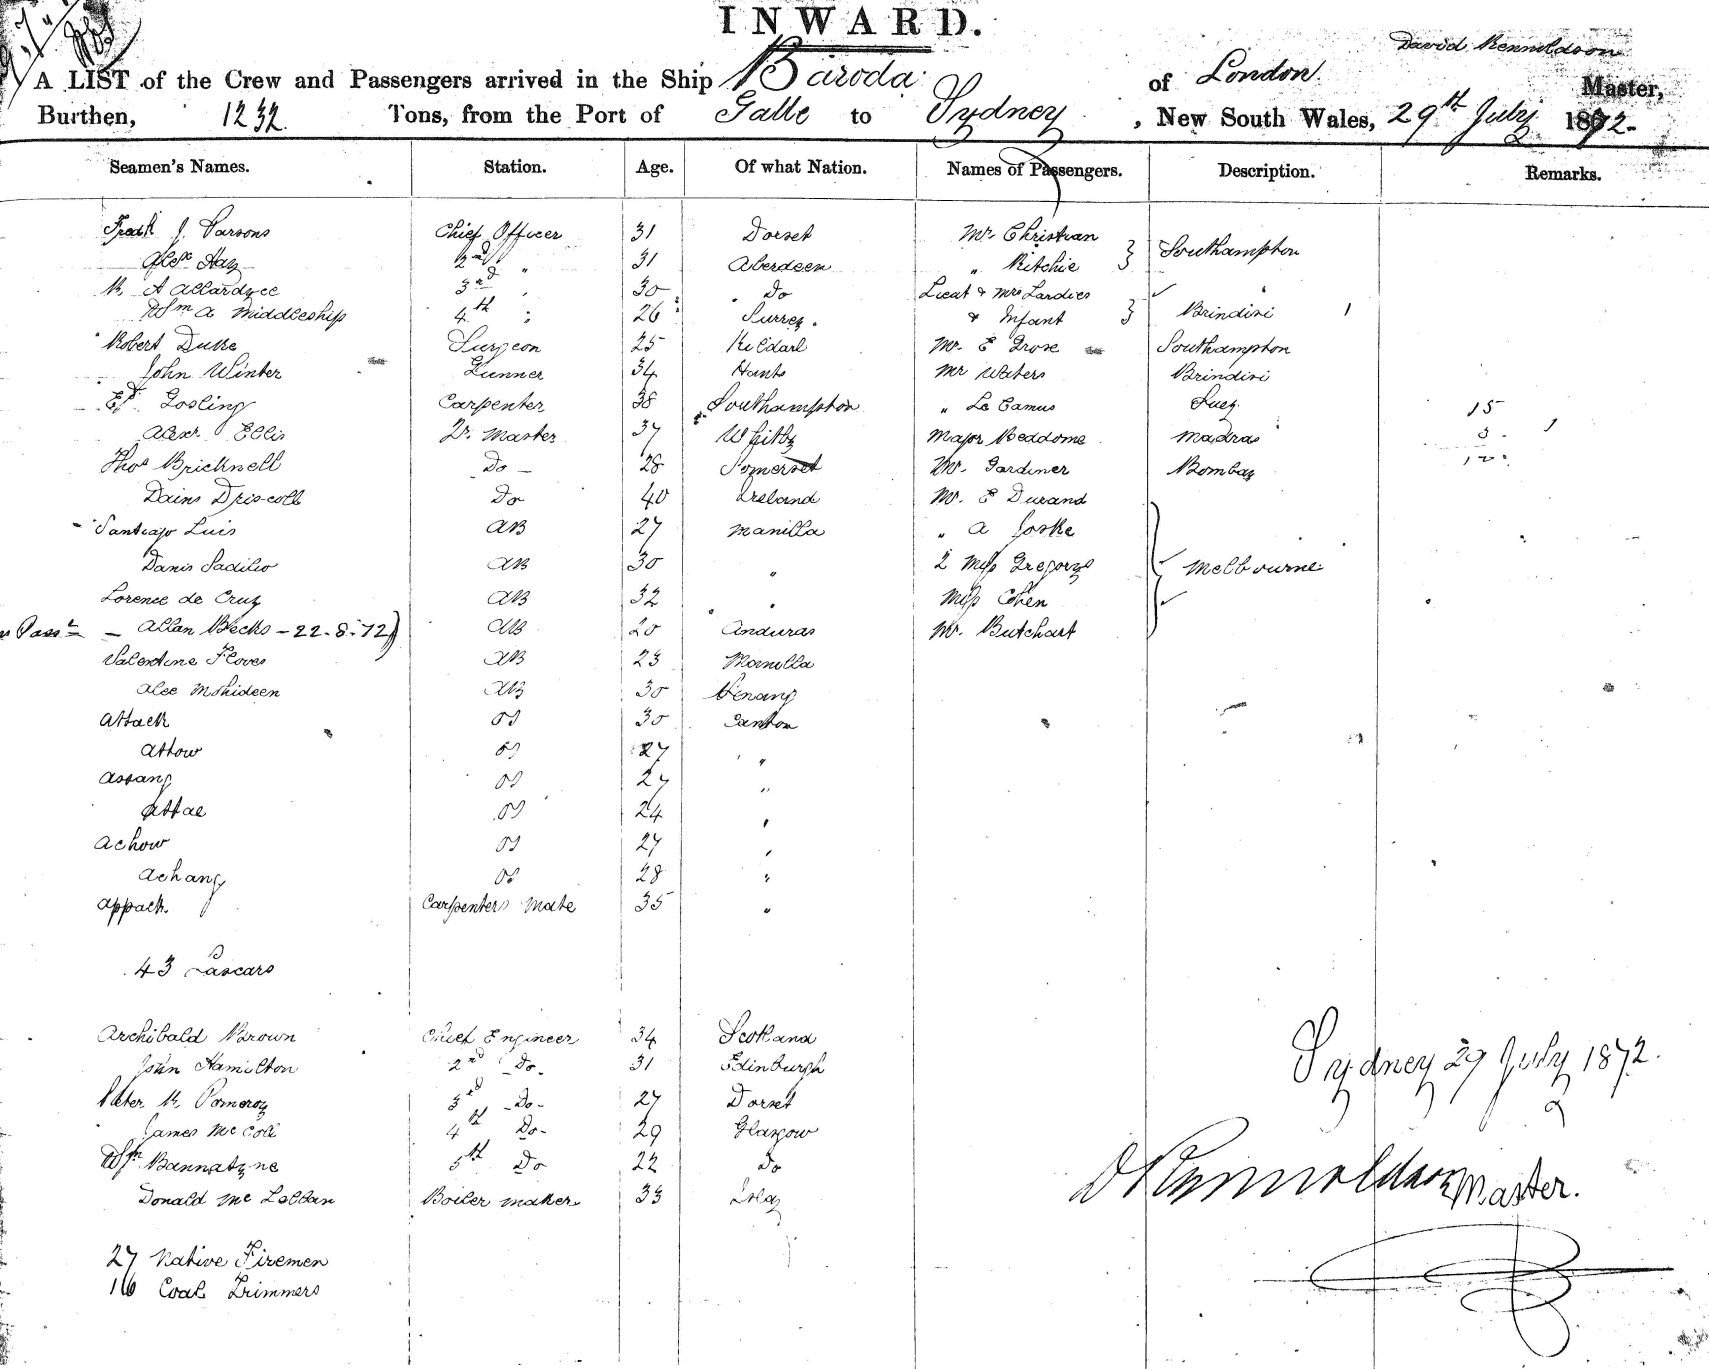 INWARD.
David Rennoldson
A LIST of the Crew and Passengers arrived in the Ship Baroda of London. Master,
Burthen, 1232 Tons, from the Port of Galle to Sydney, New South Wales, 29th July 1872.
Seamen's Names. Station. Age. Of what Nation. Names of Passengers. Description. Remarks.
Fredk J Parsons Chief Officer 31 Dorset Mr Christian Southampton
Alexr Hay 2nd " 31 Aberdeen " Ritchie
R. A Allardyce 3rd " 30 Do Lieut & Mrs Lardies
Wm A Middleship 4th " 26 Surrey. & Infant Brindisi
Robert Duke Surgeon 25 Kildare Mr. E Grose Southampton
John Winter Gunner 34 Hants Mr Waters Brindisi
Ed. Gosling Carpenter 38 Southampton " Le Camus Suez 15
Alexr. Ellis Qr. Master 37 Whitby Major Beddome Madras 3
Thos Bricknell Do 28 Somerset Mr. Gardiner Bombay 12
Dains Driscoll Do 40 Ireland Mr. E Durand
Santiago Luis AB 27 Manilla " A Joske
Danis Sadilio AB 30 " 2 Miss Gregorys Melbourne
Lorence de Cruz AB 32 " Miss Cohen
Pass - Allan Becks - 22.8.72) AB 20 Anduras Mr. Butchart
Valentine Flores AB 23 Manilla
Alee Mohideen AB 30 Penang
Attack OS 30 Canton
Attow OS 27 "
Assang OS 27 "
Attae OS 24 "
Achow OS 27 "
Achang OS 28 "
Appack. Carpenters Mate 35 "
43 Lascars
Archibald Brown Chief Engineer 34 Scotland
John Hamilton 2nd Do. 31 Edinburgh
Peter R. Pomeroy 3rd -Do- 27 Dorset
James McColl 4th Do- 29 Glasgow
Wm Bannatyne 5th Do 22 Do
Donald McLellan Boiler maker 33 Islay
Sydney 29 July 1872.
D Rennoldson Master.
27 Native Firemen
16 Coal Trimmers